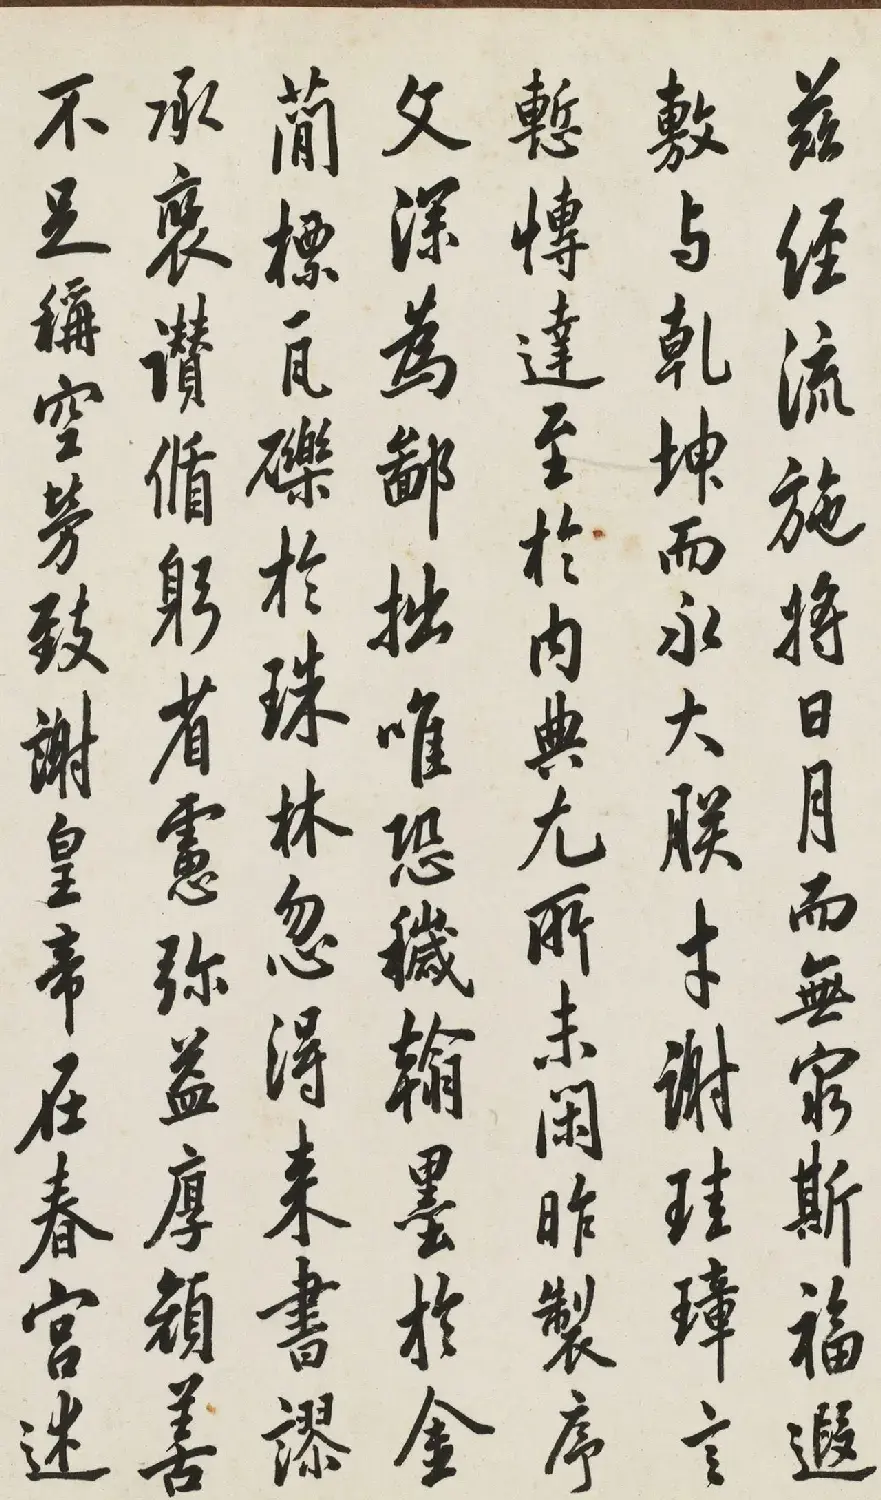 茲經流施將日月而無窮斯福遐
敷与乹坤而永大朕才謝珪璋言
慙愽達至於内典尤所未閑昨製序
文深為鄙拙唯恐穢翰墨於金
蕳標瓦礫於珠林忽得来書謬
承襃讃循躬省慮弥益厚顔善
不足稱空勞致謝皇帝在春宮述